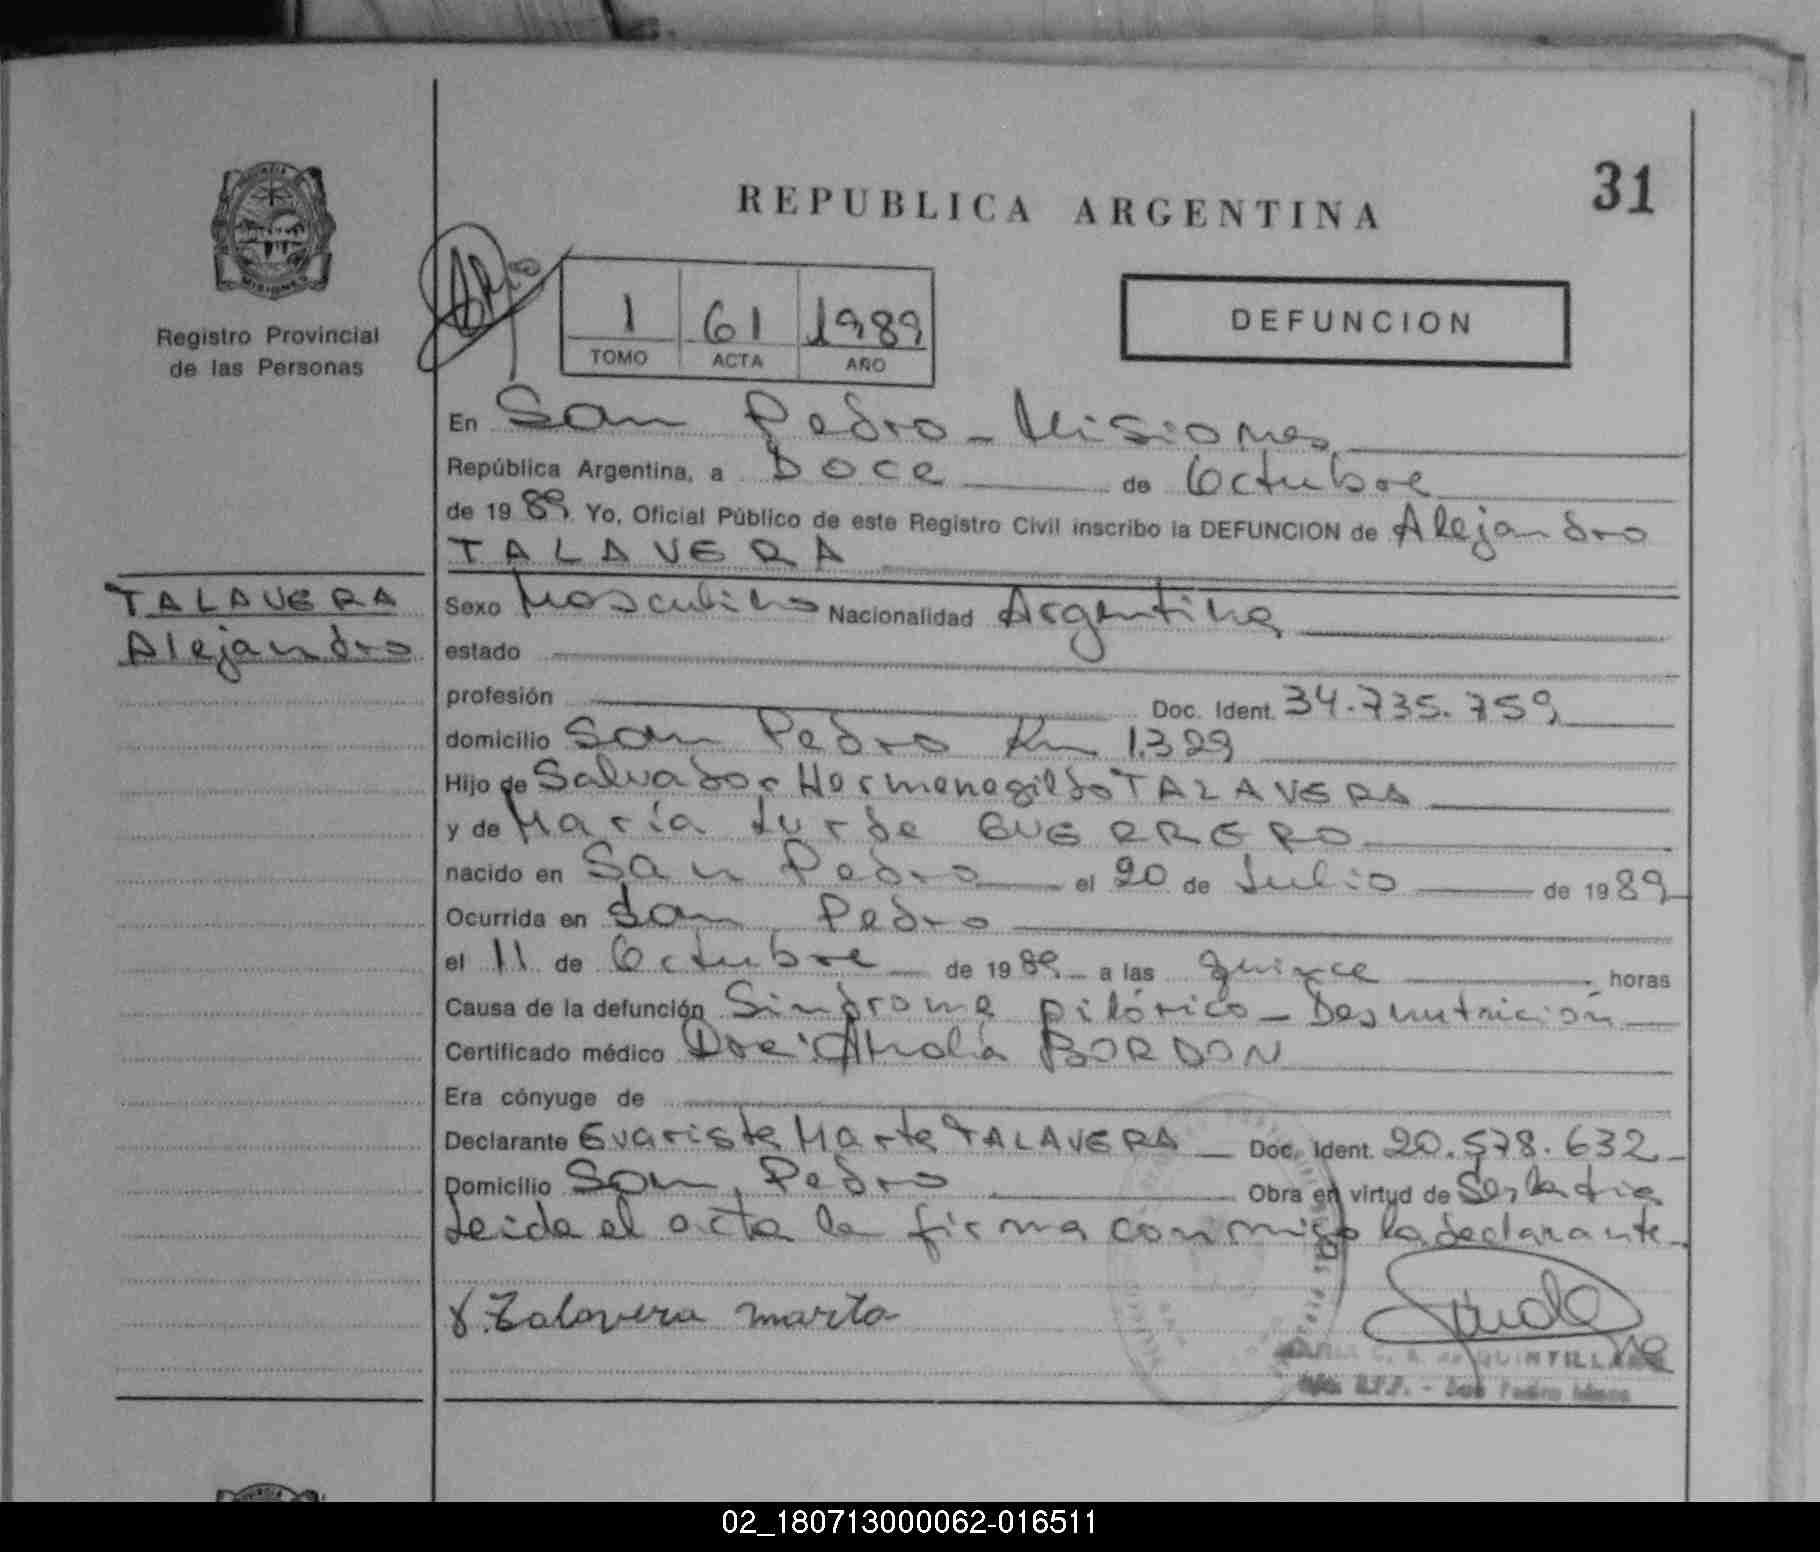 REPUBLICA ARGENTINA
31
Registro Provincial
de las Personas
1 61 1989
TOMO ACTA AÑO
DEFUNCION
En San Pedro - Misiones
República Argentina, a Doce de Octubre
de 1989. Yo, Oficial Público de este Registro Civil inscribo la DEFUNCION de Alejandro
TALAVERA
TALAVERA
Alejandro
Sexo Masculino Nacionalidad Argentina
estado
profesión Doc. Ident. 34.735.759
domicilio San Pedro Km 1.329
Hijo de Salvador Hermenegildo TALAVERA
y de María Lurde GUERRERO
nacido en San Pedro el 20 de Julio de 1989
Ocurrida en San Pedro
el 11 de Octubre de 1989 a las quince horas
Causa de la defunción Sindrome pilórico - Desnutrición
Certificado médico Dra: BORDON
Era cónyuge de
Declarante Evarista Marta TALAVERA Doc. Ident. 20.578.632
Domicilio San Pedro Obra en virtud de
Leida el acta la firma conmigo la declarante
Talavera marta
QUINTILLAN
R.P.P. - San Pedro
02_180713000062-016511